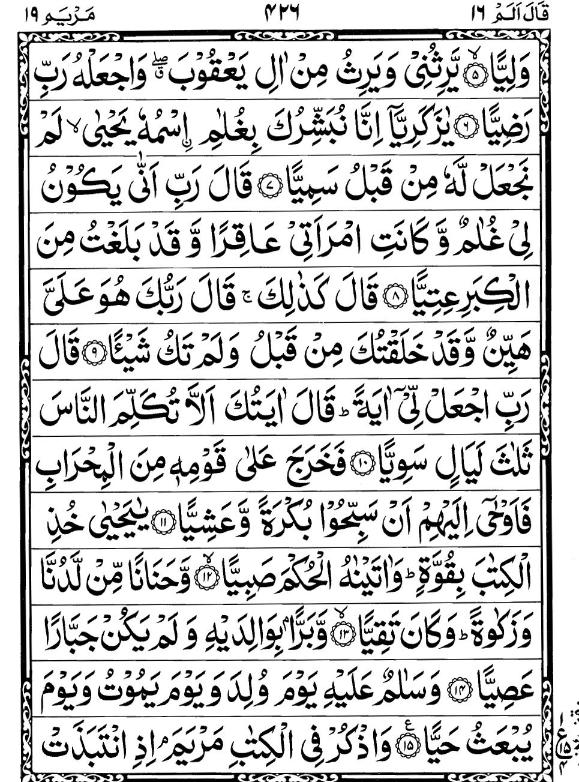 قَالَ اَلَمْ ١٦ ٤٢٦ مَرْيَم ١٩
وَلِيًّا ۙ‏﴿۵﴾ يَّرِثُنِىْ وَيَرِثُ مِنْ اٰلِ يَعْقُوْبَ ۖۗ وَاجْعَلْهُ رَبِّ
رَضِيًّا ﴿۶﴾ يٰزَكَرِيَّاۤ اِنَّا نُبَشِّرُكَ بِغُلٰمِ اۨسْمُهٗ يَحْيٰى ۙ لَمْ
نَجْعَلْ لَّهٗ مِنْ قَبْلُ سَمِيًّا ﴿۷﴾ قَالَ رَبِّ اَنّٰى يَكُوْنُ
لِىْ غُلٰمٌ وَّكَانَتِ امْرَاَتِىْ عَاقِرًا وَّقَدْ بَلَغْتُ مِنَ
الْكِبَرِ عِتِيًّا ﴿۸﴾ قَالَ كَذٰلِكَ ۚ قَالَ رَبُّكَ هُوَ عَلَىَّ
هَيِّنٌ وَّقَدْ خَلَقْتُكَ مِنْ قَبْلُ وَلَمْ تَكُ شَيْـًٔا ﴿۹﴾ قَالَ
رَبِّ اجْعَلْ لِّىْۤ اٰيَةً ؕ قَالَ اٰيَتُكَ اَلَّا تُكَلِّمَ النَّاسَ
ثَلٰثَ لَيَالٍ سَوِيًّا ﴿۱۰﴾ فَخَرَجَ عَلٰى قَوْمِهٖ مِنَ الْمِحْرَابِ
فَاَوْحٰۤى اِلَيْهِمْ اَنْ سَبِّحُوْا بُكْرَةً وَّعَشِيًّا ﴿۱۱﴾ يٰيَحْيٰى خُذِ
الْكِتٰبَ بِقُوَّةٍ ؕ وَاٰتَيْنٰهُ الْحُكْمَ صَبِيًّا ۙ﴿۱۲﴾ وَّحَنَانًا مِّنْ لَّدُنَّا
وَزَكٰوةً ؕ وَكَانَ تَقِيًّا ۙ﴿۱۳﴾ وَّبَرًّۢا بِوَالِدَيْهِ وَلَمْ يَكُنْ جَبَّارًا
عَصِيًّا ﴿۱۴﴾ وَسَلٰمٌ عَلَيْهِ يَوْمَ وُلِدَ وَيَوْمَ يَمُوْتُ وَيَوْمَ
يُبْعَثُ حَيًّا ﴿۱۵﴾ ع وَاذْكُرْ فِى الْكِتٰبِ مَرْيَمَ ۘ اِذِ انْتَبَذَتْ